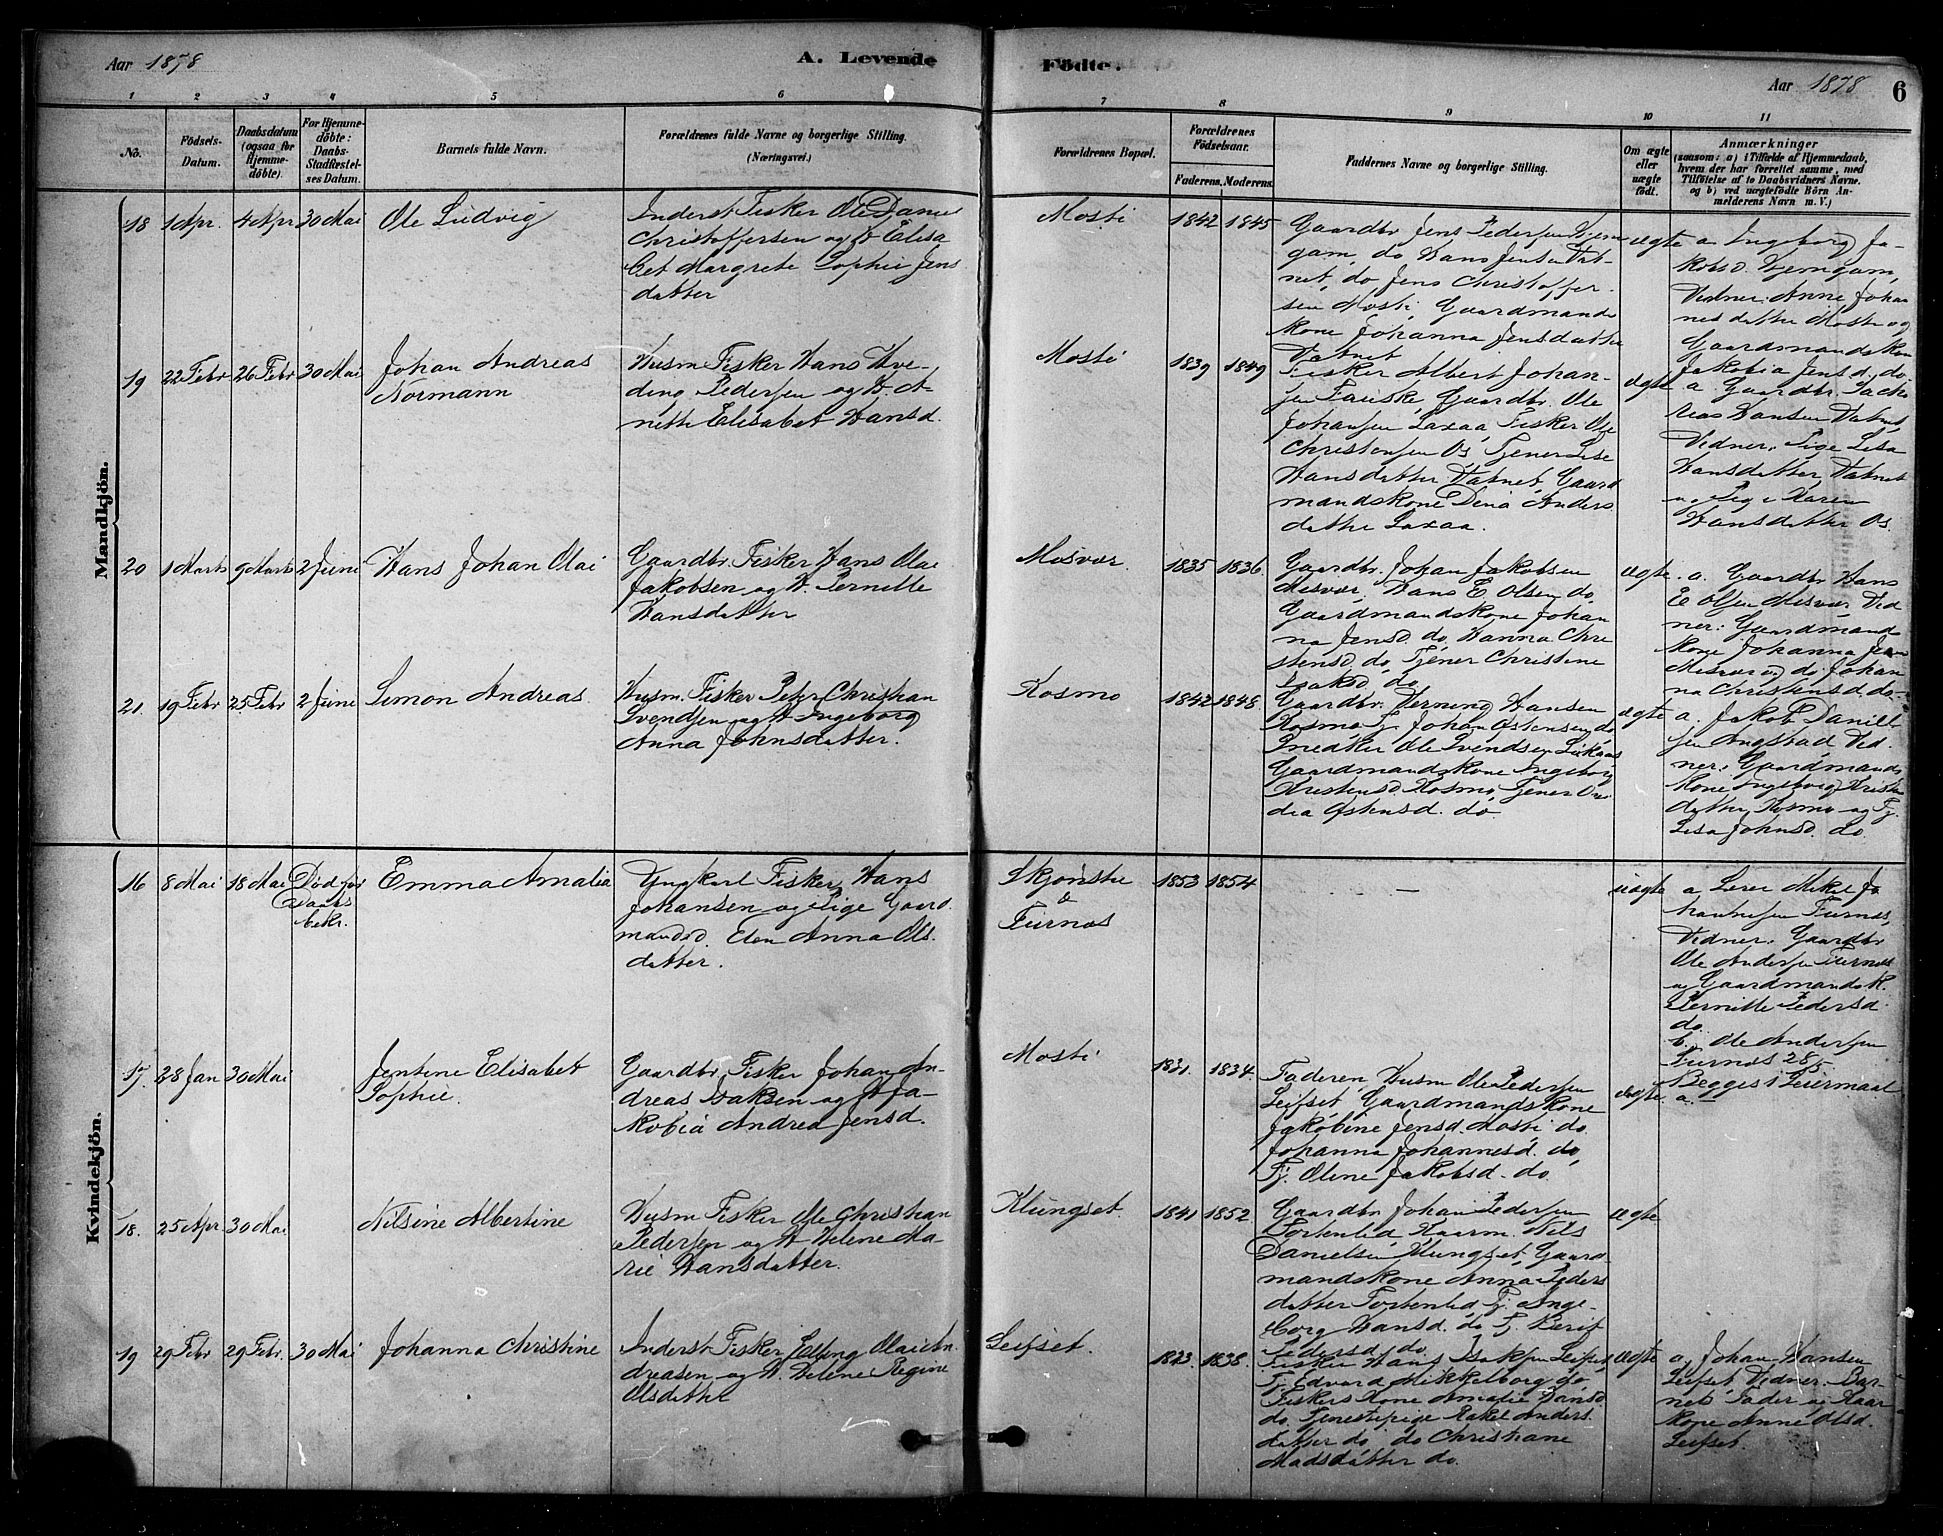 Aar 1878
A. Levende
Födte.
Aar 1878
6
1 2 3 4 5 6 7 8 9 10 11
No.
Födsels-
Datum.
Daabsdatum
(ogsaa for
Hjemme-
döbte).
For Hjemme-
döbte:
Daabs-
Stadfæstel-
ses Datum.
Barnets fulde Navn.
Forældrenes fulde Navne og borgerlige Stilling.
(Næringsvei.)
Forældrenes Bopæl.
Forældrenes
Födselsaar.
Faderens. Moderens.
Faddernes Navne og borgerlige Stilling.
Om ægte
eller
uægte
født.
Anmærkninger
(saasom: a) i Tilfælde af Hjemmedaab,
hvem der har forrettet samme, med
Tilföielse af to Daabsvidners Navne.
og b) ved uægtefödte Börn An-
melderens Navn m. V.)
Mandkjön.
18 1 Apr. 4 Apr 30 Mai Ole Ludvig
Inderst Fisker Ole Daniel
Christoffersen og H. Elisa
bet Margrete Sophie Jens
datter
Mosti 1842 1845
Gaardbr Jens Pedersen
, do Hans Jensen Vat-
net, do Jens Christoffer-
sen Mosti, Gaardmands
kone Johanna Jensdatter
Vatnet
ægte
a. Ingeborg Ja-
kobsd.
Vidner: Anne Johan
nesdatter Mosti og
Gaardmandskon
Jakobia Jensd. do
19 22 Febr 26 Febr 30 Mai Johan Andreas
Normann
Husm Fisker Hans
Pedersen og H. A-
nette Elisabet Hansd.
Mosti 1839 1849
Fisker Albert Johan-
sen Fauske, Gaardbr. Ole
Johansen Laxaa, Fisker Ole
Christensen Os Tjener Lise
Hansdatter Vatnet, Gaard
mandskone Dina Anders
datter Laxaa.
ægte
a. Gaardbr. Zacha
rias Hansen Vatnet
Vidner: Pige Lisa
Hansdatter Vatnet
og Pige Karen
Hansdatter Os
20 1 Marts 9 Marts 2 Juni Hans Johan Olai
Gaardbr. Fisker Hans Olai
Jakobsen og H. Pernille
Hansdatter
Mosvær. 1835 1836.
Gaardbr. Johan Jakobsen
Misvær, Hans E. Olsen do
Gaardmandskone Johan
na Jensd do. Hanna Chri
stensd. do, Tjener Christine
Isaksd do
ægte.
a. Gaardbr Hans
E Olsen Misvær Vid
ner: Gaardmands
kone Johanna Jens
Misvær og do Johan
na Christensd do.
21. 19 Febr 25 Febr 2 Juni Simon Andreas.
Husm. Fisker Peter Christian
Svendsen og H Ingeborg
Anna Johnsdatter.
Kosmo 1842 1848.
Gaardbr. Herning Hansen
Kosmo Tj. Johan Østensen do
Snedker Ole Svendsen
Gaardmandskone Ingeborg
Kristensd Kosmo, Tjener
Østensd. do.
ægte
a. Jakob Daniel
sen Angstad Vid-
ner: Gaardmands
kone Ingeborg Kristens
datter Kosmo og Tj.
Lisa Johnsd. do.
Kvindekjön.
16 8 Mai 18 Mai Død før
Daabs
bekr.
Emma Amalia
Ungkarl Fisker Hans
Johansen og Pige Gaard
mandsd. Elen Anna Ols
datter.
Skjønstu
&
Furnæs
1853 1854 — uægte
a Lærer Mikal Jo
hannesen Furnæs,
Vidner: Gaardbr
Ole Andersen Furnæs
og Gaardmandsk.
Pernille Pedersd.
do.
b. Ole Andersen
Furnæs 28/5
Begges 1 Leiermaal
17. 28 Jan 30 Mai Jentine Elisabet
Sophie.
Gaardbr, Fisker Johan An-
dreas Isaksen og H Ja-
kobia Andrea Jensd.
Mosti 1831. 1834.
Faderen, Husm Ole Pedersen
Leifset, Gaardmandskone
Jakobine Jensd. Mosti do
Johanna Johannesd. do,
Tj. Oline Jakobsd. do
ægte. a. —
18. 25 Apr 30 Mai Nilsine Albertine
Husm Fisker Ole Christian
Pedersen og H Helene Ma-
rie Hansdatter.
Klungset. 1841 1852
Gaardbr Johan Pedersen
Tortenlid, Kaarm. Nils
Danielsen Klungset, Gaard
mandskone Anna Peders
datter Tortenlid Tj. Inge-
borg Hansd. do Tj. Berit
Pedersd. do.
ægte
19 29 Febr 29 Febr. 30 Mai Johanna Christine
Inderst Fisker Elling Olai An
dreasen og H. Helene Regine
Olsdatter
Leifset. 1823. 1838.
Fisker Hans Isaksen Leifset,
Tj. Edvard Mikkelborg do,
Fiskers Kone Amalie Hansd
do, Tjenestepige Rakel Anders
datter do, do Christiane
Madsdatter do.
ægte
a. Johan Hansen
Leifset. Vidner: Bar-
nets Fader og Kaar
kone Anne Olsd.
Leifset.